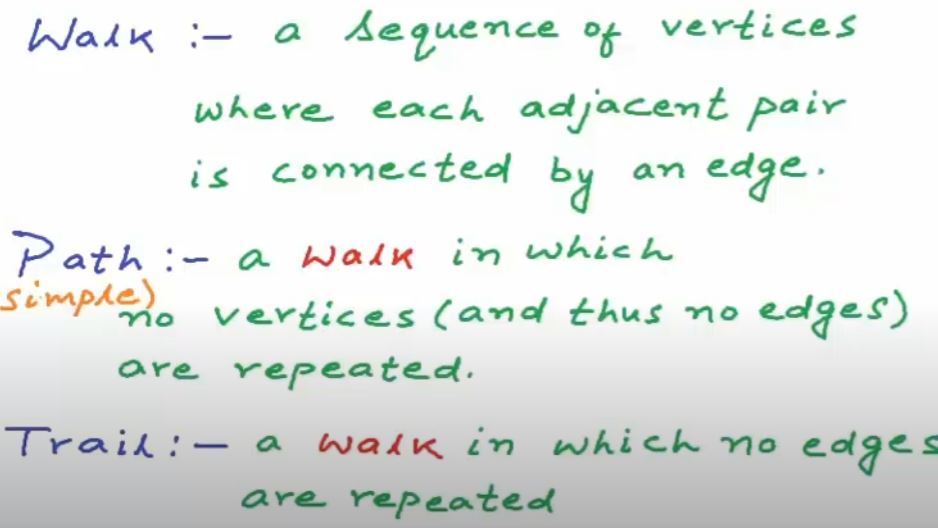 Walk :- a sequence of vertices
where each adjacent pair
is connected by an edge.
Path :- a walk in which
simple)
no vertices (and thus no edges)
are repeated.
Trail :- a walk in which no edges
are repeated